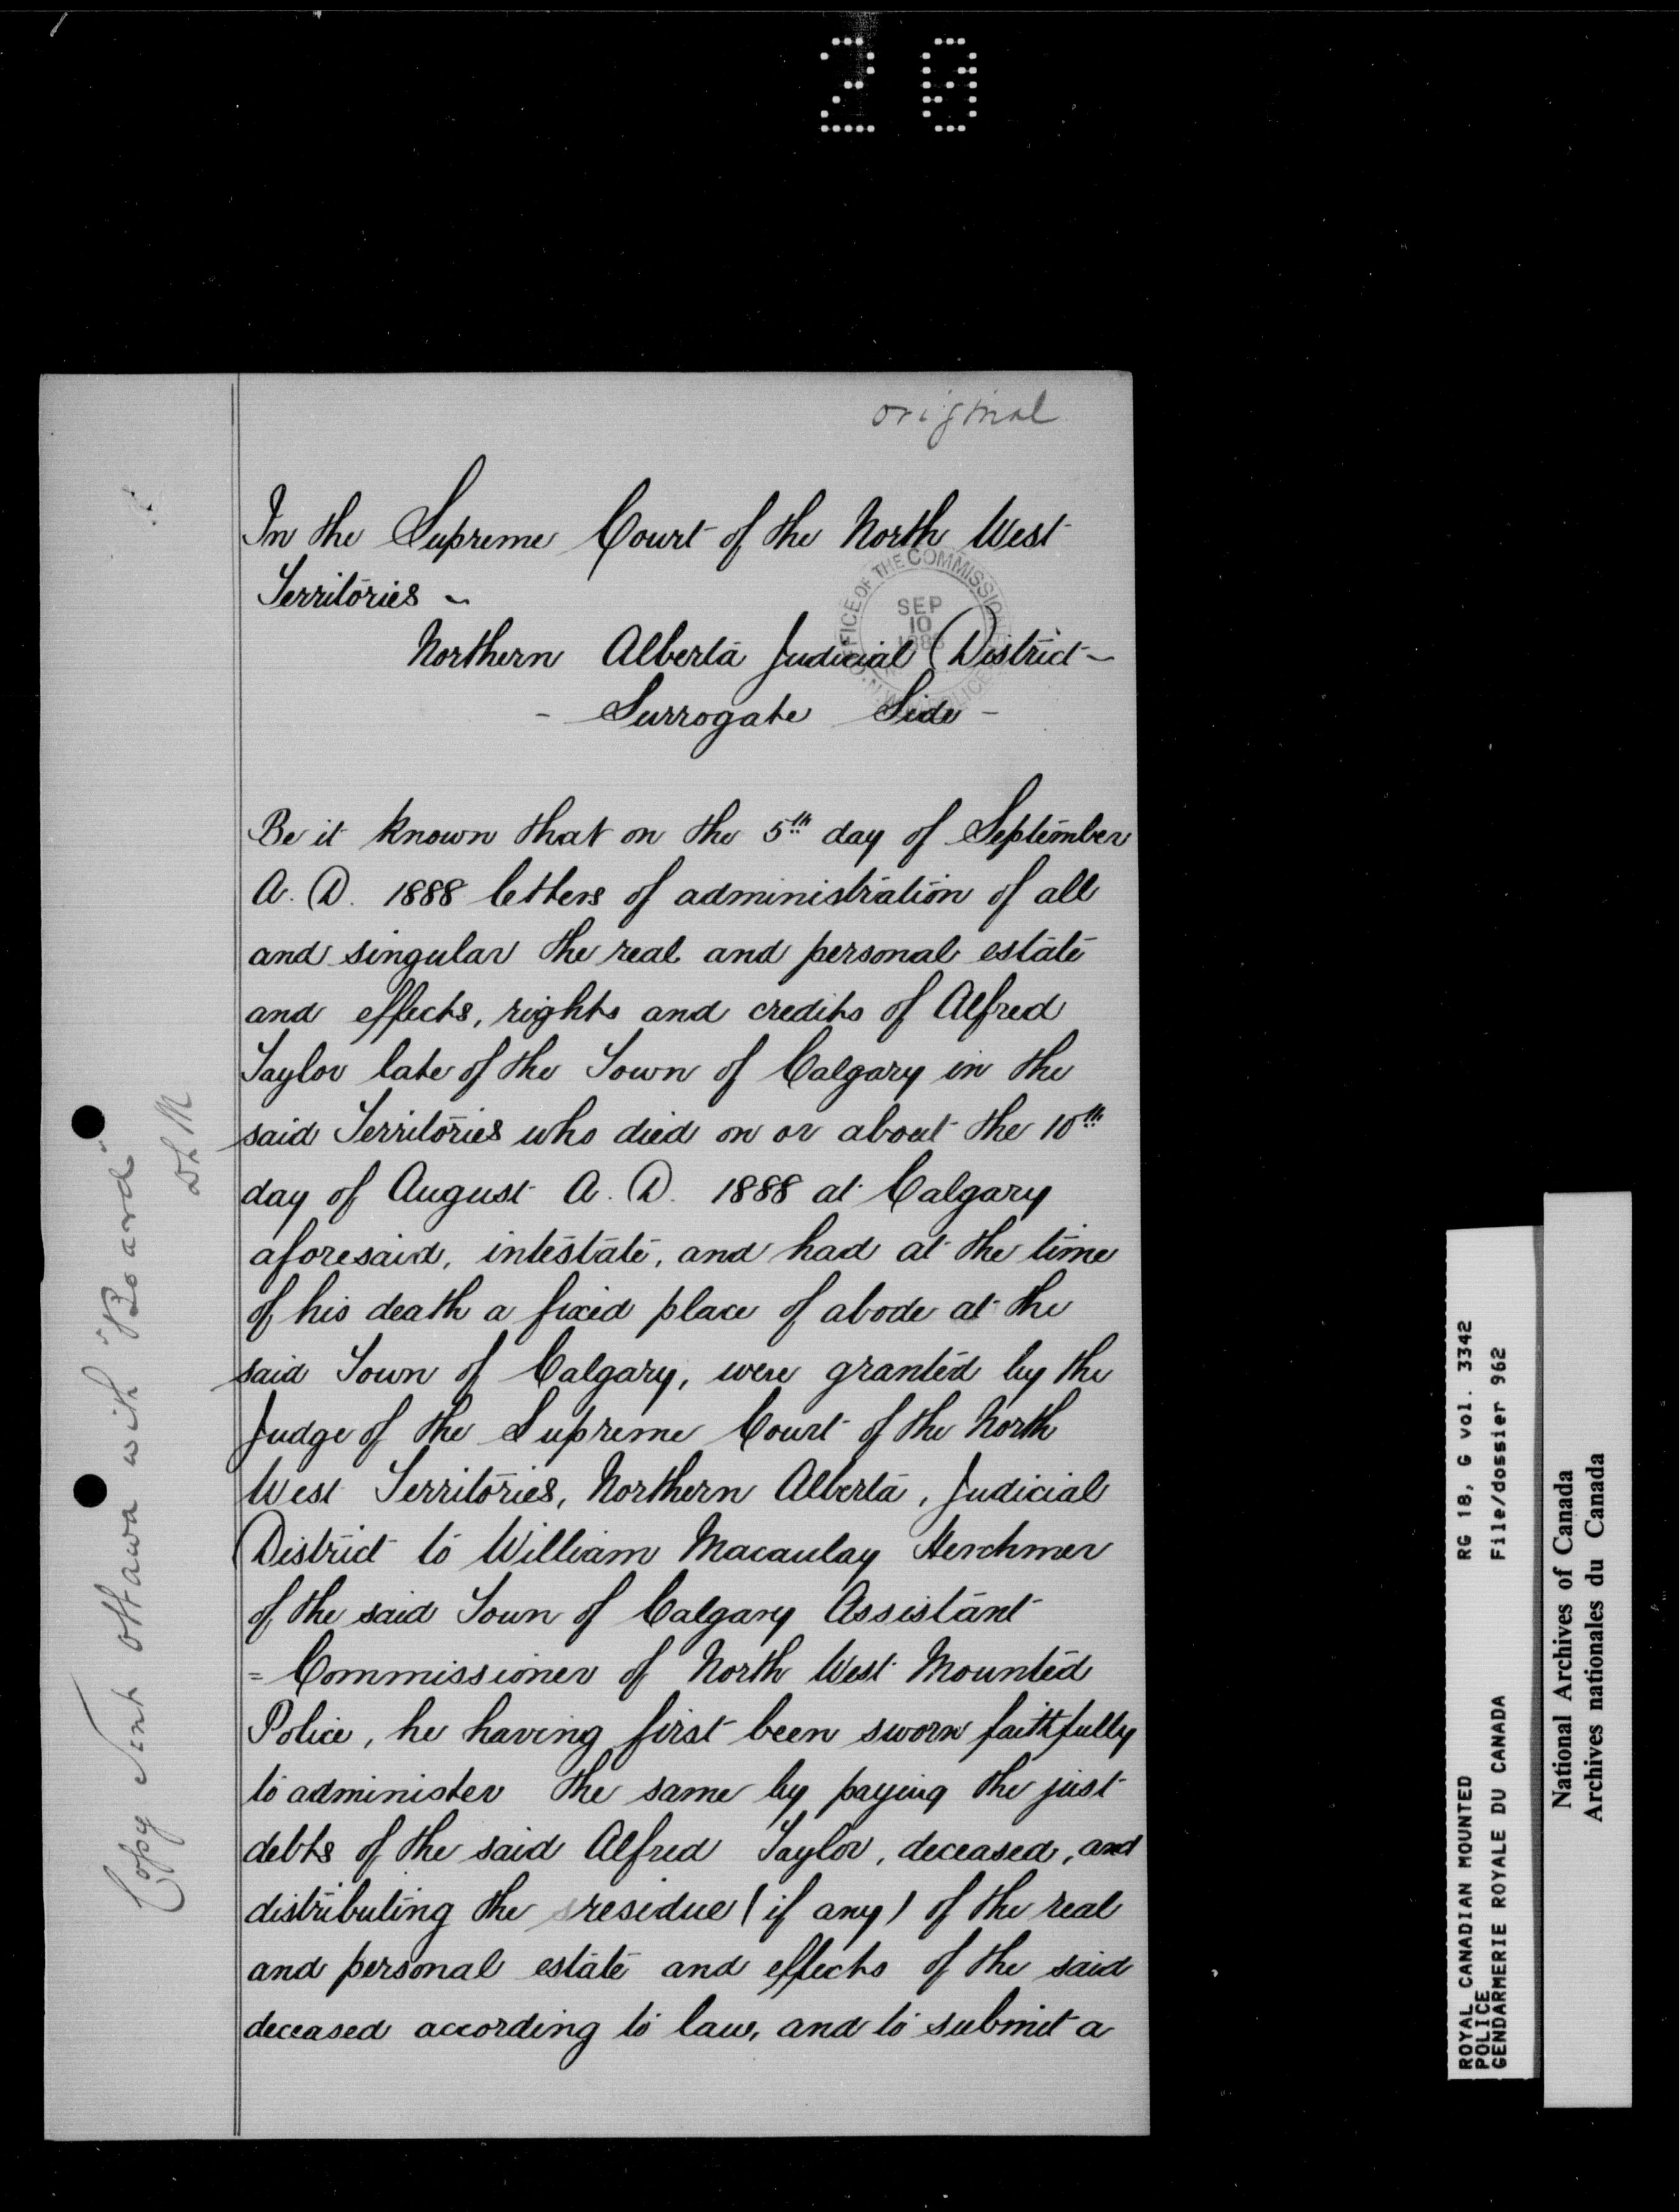 20
original
In the Supreme Court of the North West
Territories ~
Northern Alberta Judicial District ~
- Surrogate Side -
OFFICE OF THE COMMISSIONER
SEP
10
1888
N.W. POLICE
Be it known that on the 5th day of September
A. D. 1888 letters of administration of all
and singular the real and personal estate
and effects, rights and credits of Alfred
Taylor late of the Town of Calgary in the
said Territories who died on or about the 10th
day of August A. D. 1888 at Calgary
aforesaid, intestate, and had at the time
of his death a fixed place of abode at the
said Town of Calgary, were granted by the
Judge of the Supreme Court of the North
West Territories, Northern Alberta, Judicial
District to William Macaulay Herchmer
of the said Town of Calgary Assistant
= Commissioner of North West Mounted
Police, he having first been sworn faithfully
to administer the same by paying the just
debts of the said Alfred Taylor, deceased, and
distributing the residue (if any) of the real
and personal estate and effects of the said
deceased according to law, and to submit a
Copy Sent Ottawa with "Board"
ROYAL CANADIAN MOUNTED
POLICE
GENDARMERIE ROYALE DU CANADA
RG 18, G vol. 3342
File/dossier 962
National Archives of Canada
Archives nationales du Canada